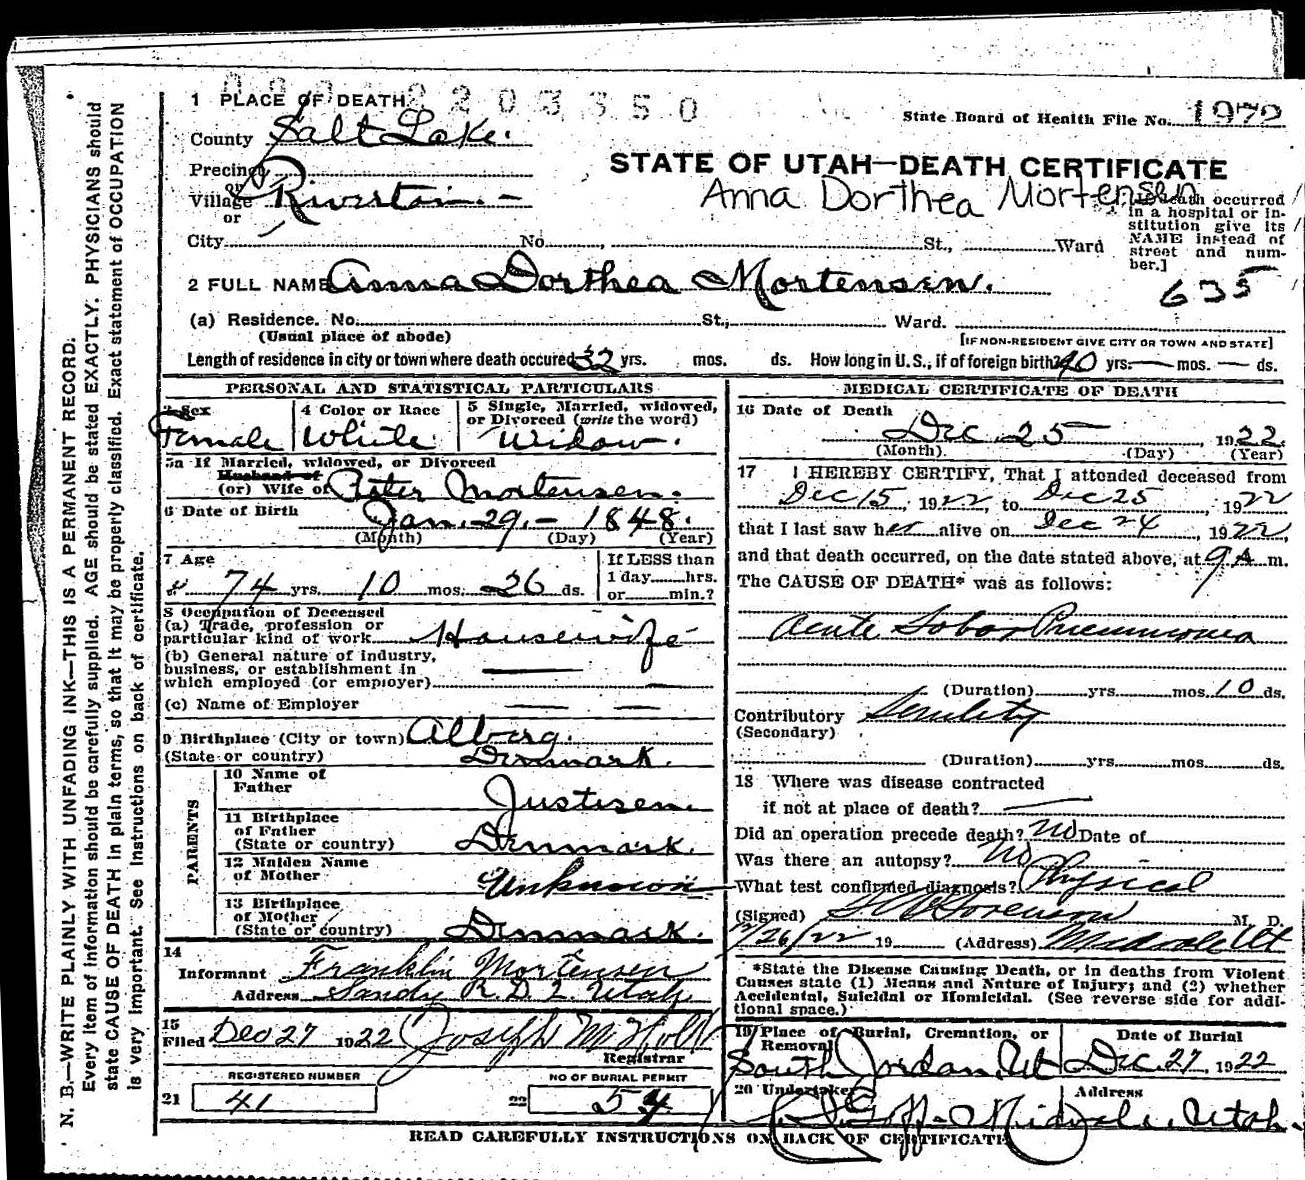 2203350
1 PLACE OF DEATH
State Board of Health File No. 1972
County Salt Lake.
STATE OF UTAH—DEATH CERTIFICATE
Precinct
or
Anna Dorthea Mortensen
Village Riverton. -
or
death occurred
in a hospital or in-
stitution give its
NAME instead of
street and num-
ber.]
City No. , St., Ward
635
2 FULL NAME Anna Dorthea Mortensen.
(a) Residence. No. St., Ward.
(Usual place of abode)
[IF NON-RESIDENT GIVE CITY OR TOWN AND STATE]
Length of residence in city or town where death occured 32 yrs. mos. ds. How long in U. S., if of foreign birth? 40 yrs. — mos. — ds.
PERSONAL AND STATISTICAL PARTICULARS
3 Sex
Female
4 Color or Race
White
5 Single, Married, widowed,
or Divorced (write the word)
Widow.
5a If Married, widowed, or Divorced
Husband of
(or) Wife of Peter Mortensen.
6 Date of Birth Jan. - 29. - 1848.
(Month) (Day) (Year)
7 Age
74 yrs. 10 mos. 26 ds.
If LESS than
1 day......hrs.
or......min.?
8 Occupation of Deceased
(a) Trade, profession or
particular kind of work Housewife
(b) General nature of industry,
business, or establishment in
which employed (or employer)
(c) Name of Employer — —
9 Birthplace (City or town) Alborg.
(State or country) Denmark.
PARENTS
10 Name of
Father Justisen.
11 Birthplace
of Father
(State or country) Denmark.
12 Maiden Name
of Mother Unknown
13 Birthplace
of Mother
(State or country) Denmark.
14
Informant Franklin Mortensen
Address Sandy R.D. 2. Utah.
15
Filed Dec 27 1922 Joseph M Holt
Registrar
REGISTERED NUMBER
21 41
NO OF BURIAL PERMIT
22 54
MEDICAL CERTIFICATE OF DEATH
16 Date of Death
Dec. 25 , 1922.
(Month) (Day) (Year)
17 I HEREBY CERTIFY, That I attended deceased from
Dec 15, 1922, to Dec 25, 1922
that I last saw her alive on Dec 24, 1922,
and that death occurred, on the date stated above, at 9 A. m.
The CAUSE OF DEATH* was as follows:
Acute Lobar Pneumonia
(Duration) yrs. mos. 10 ds.
Contributory Senility
(Secondary)
(Duration) yrs. mos. ds.
18 Where was disease contracted
if not at place of death? —
Did an operation precede death? No Date of
Was there an autopsy? No
What test confirmed diagnosis? Physical
(Signed) Sorenson M. D.
12/26/22 19 (Address) Midvale Ut
*State the Disease Causing Death, or in deaths from Violent
Causes state (1) Means and Nature of Injury; and (2) whether
Accidental, Suicidal or Homicidal. (See reverse side for addi-
tional space.)
19 Place of Burial, Cremation, or
Removal
South Jordan, Ut
Date of Burial
Dec. 27, 1922
20 Undertaker
Goff - Midvale. Utah.
Address
READ CAREFULLY INSTRUCTIONS ON BACK OF CERTIFICATE
N. B.—WRITE PLAINLY WITH UNFADING INK—THIS IS A PERMANENT RECORD.
Every item of information should be carefully supplied. AGE should be stated EXACTLY. PHYSICIANS should
state CAUSE OF DEATH in plain terms, so that it may be properly classified. Exact statement of OCCUPATION
is very important. See instructions on back of certificate.